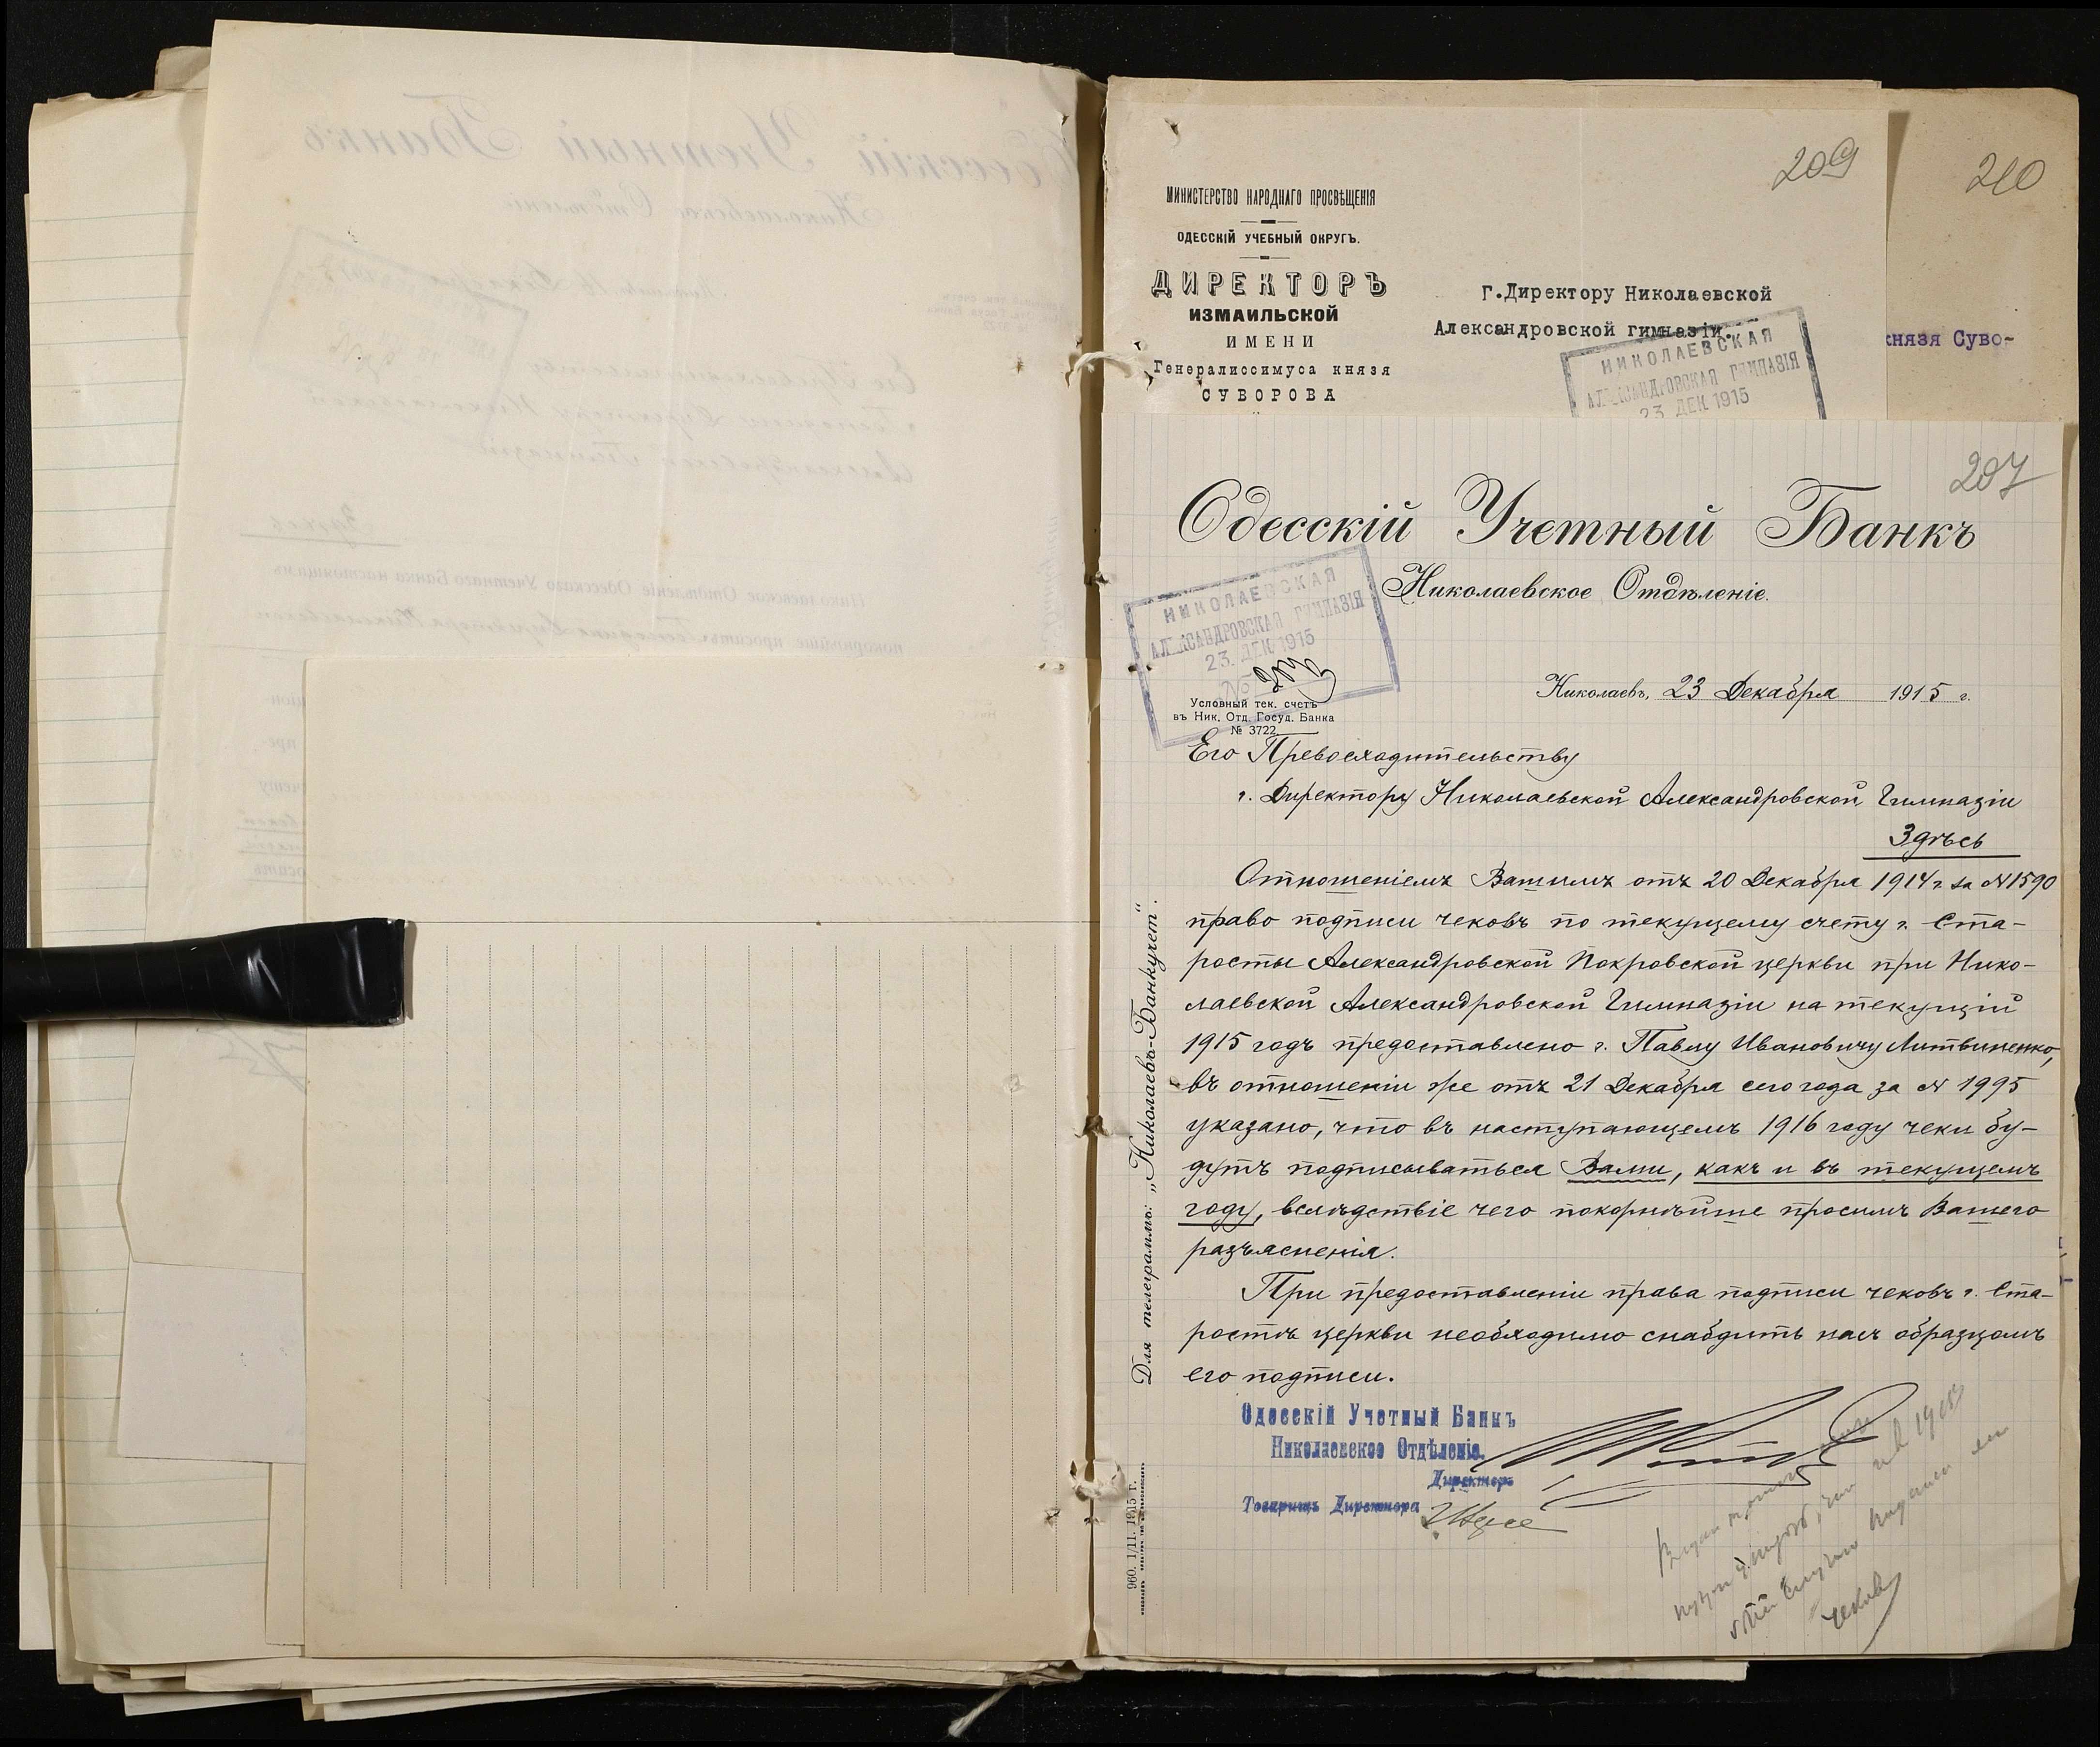 209
210
МИНИСТЕРСТВО НАРОДНАГО ПРОСВѢЩЕНІЯ
ОДЕССКІЙ УЧЕБНЫЙ ОКРУГЪ.
ДИРЕКТОРЪ
ИЗМАИЛЬСКОЙ
ИМЕНИ
Генералиссимуса князя
СУВОРОВА
Г.Директору Николаевской
Александровской гимназіи.
НИКОЛАЕВСКАЯ
АЛЕКСАНДРОВСКАЯ ГИМНАЗІЯ
23 ДЕК 1915
князя Суво-
207
Одесскій Учетный Банкъ
Николаевское Отдѣленіе.
НИКОЛАЕВСКАЯ
АЛЕКСАНДРОВСКАЯ ГИМНАЗІЯ
23. ДЕК 1915
№
Условный тек. счетъ
въ Ник. Отд. Госуд. Банка
№ 3722
Николаевъ, 23 Декабря 1915 г.
Его Превосходительству
г. Директору Николаевской Александровской Гимназіи
Здѣсь
Отношеніемъ Вашимъ отъ 20 Декабря 1914 г. за № 1590
право подписи чековъ по текущему счету г. Ста-
росты Александровской Покровской церкви при Нико-
лаевской Александровской Гимназіи на текущій
1915 годъ предоставлено г. Павлу Ивановичу Литвиненко,
въ отношеніи же отъ 21 Декабря сего года за № 1995
указано, что въ наступающемъ 1916 году чеки бу-
дутъ подписываться Вами, какъ и въ текущемъ
году, вслѣдствіе чего покорнѣйше просимъ Вашего
разъясненія.
При предоставленіи права подписи чековъ г. Ста-
ростѣ церкви необходимо снабдить насъ образцомъ
его подписи.
Одесскій Учетный Банкъ
Николаевское Отдѣленіе.
Директоръ
Товарищъ Директора
чеков
Для телеграммъ: „Николаевъ-Банкучет".
960. 1/11. 1915 г.